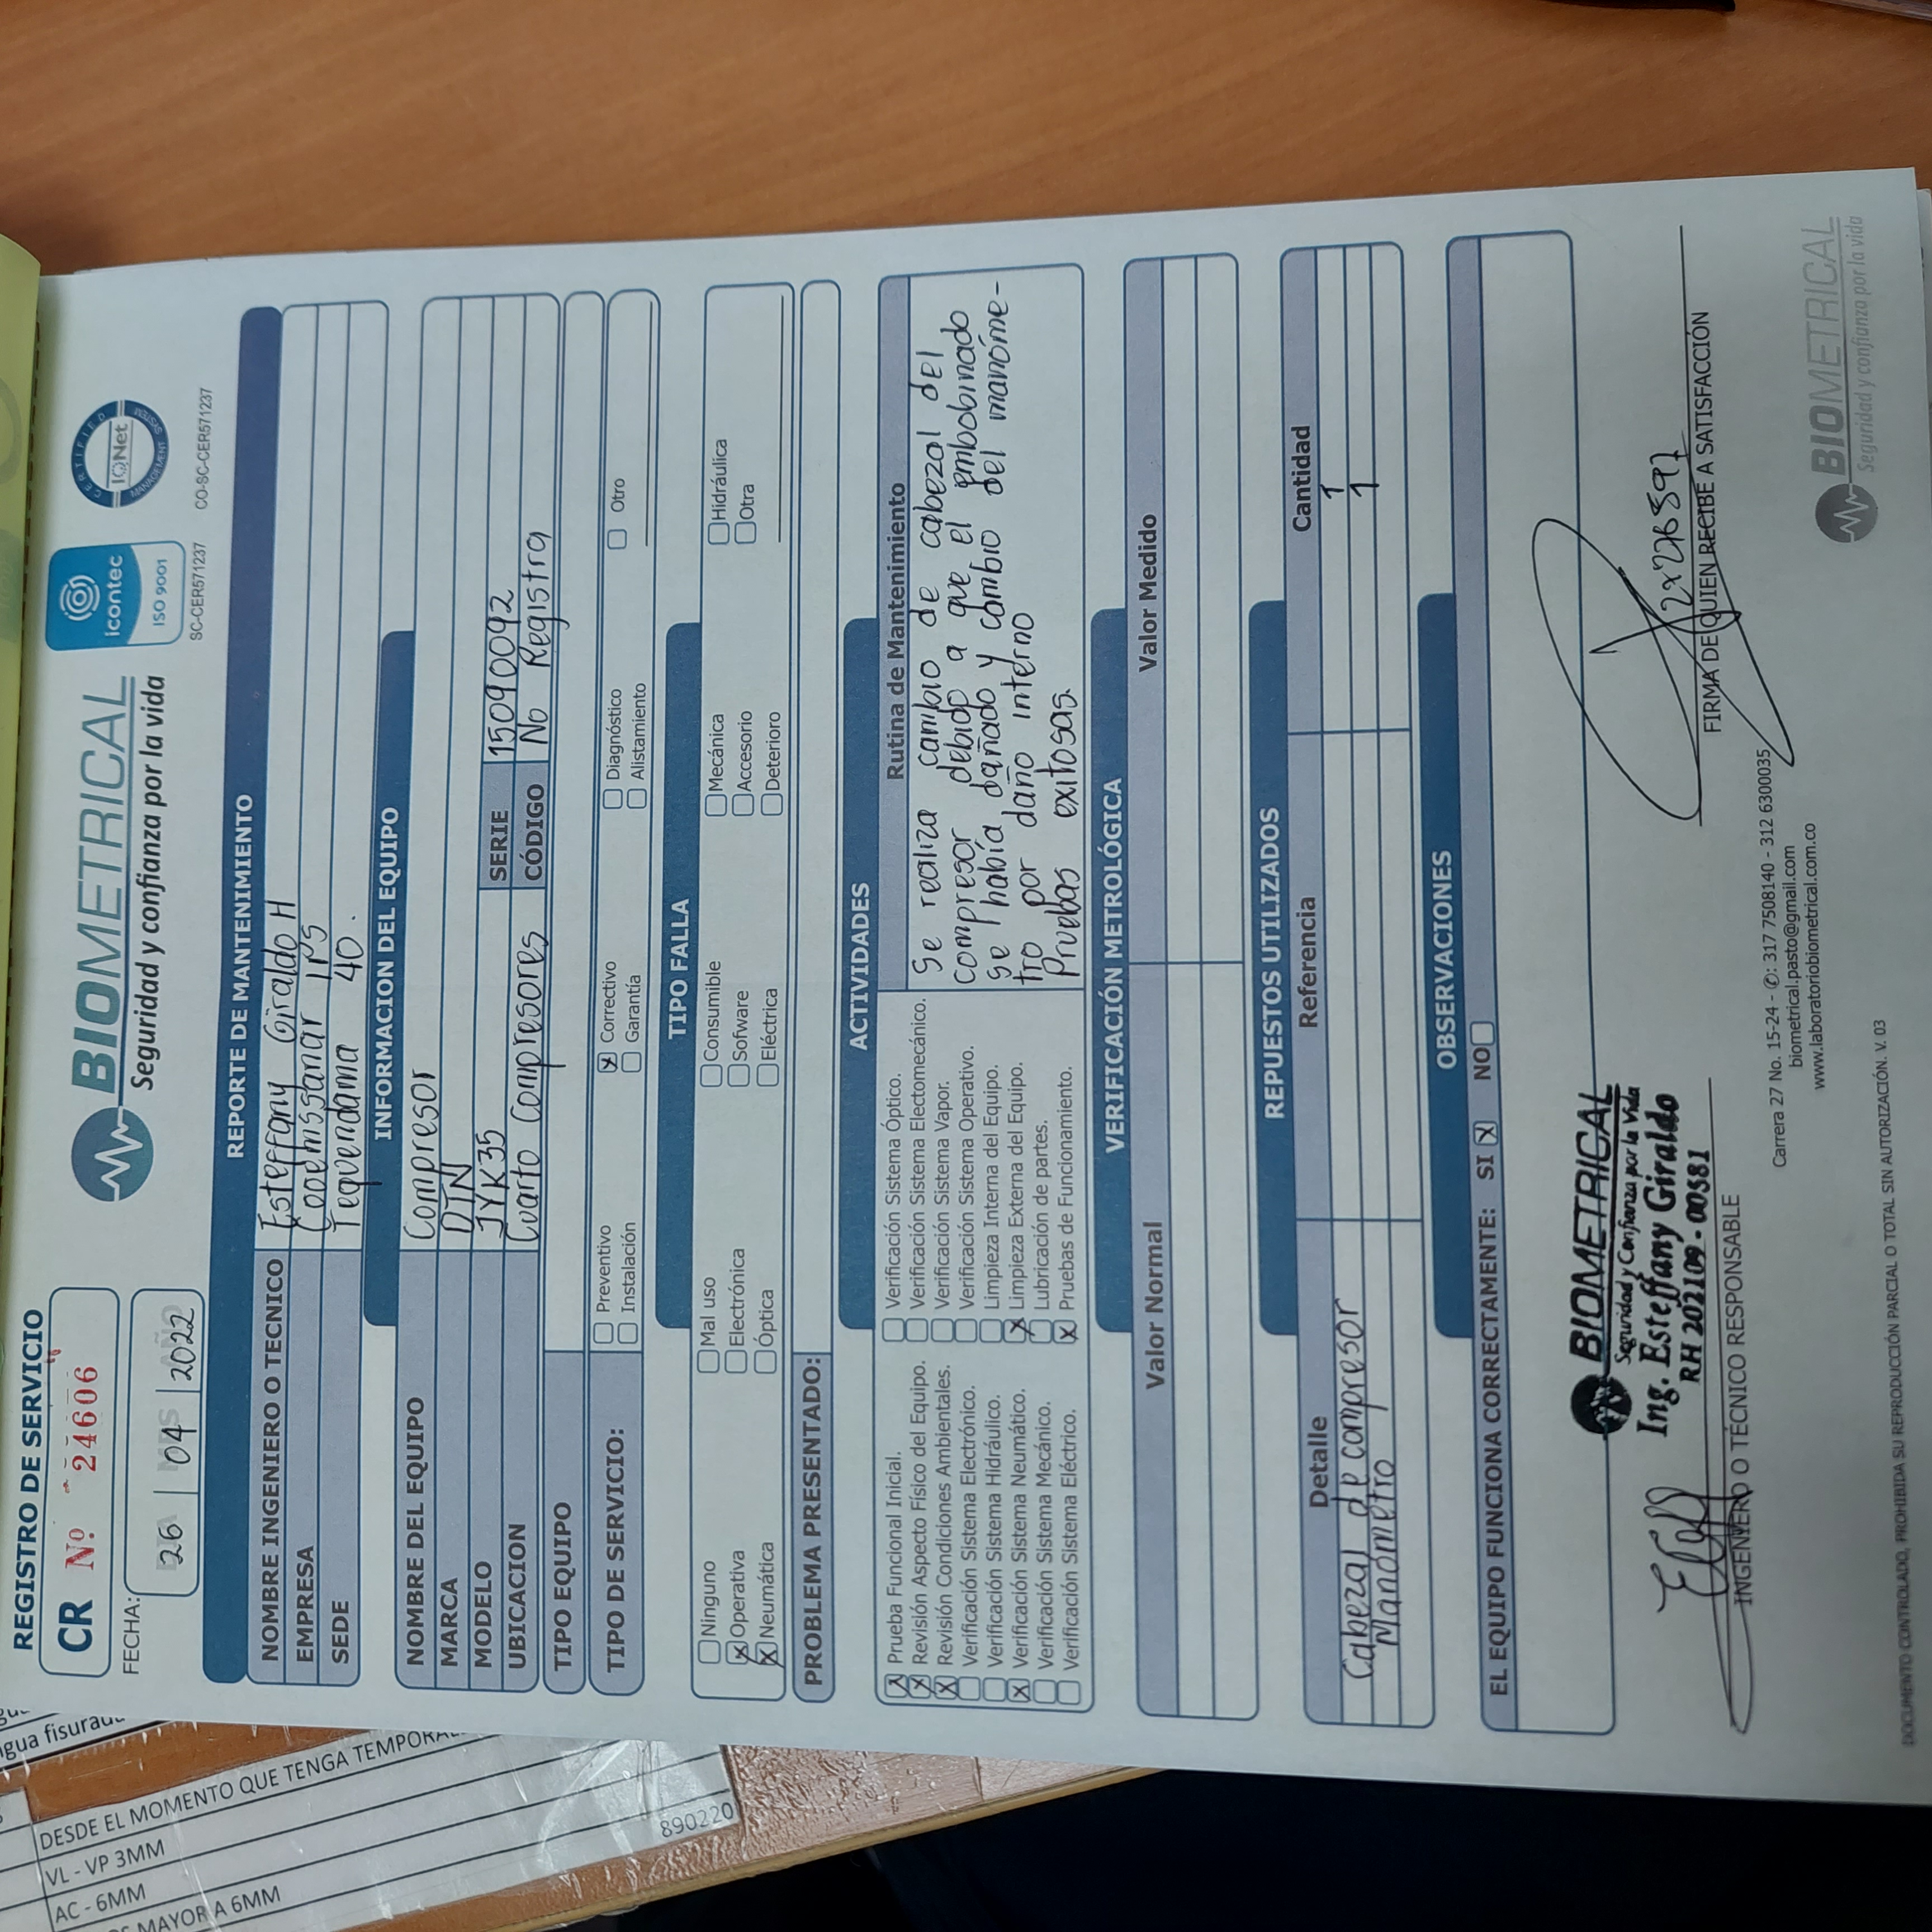 REGISTRO DE SERVICIO
CR Nº 24606
FECHA:
26 | 04 | 2022
BIOMETRICAL
Seguridad y confianza por la vida
icontec
ISO 9001
SC-CER571237
CERTIFIED
IQNet
MANAGEMENT SYSTEM
CO-SC-CER571237
REPORTE DE MANTENIMIENTO
NOMBRE INGENIERO O TECNICO Esteffany Giraldo H
EMPRESA Cooemssanar IPS
SEDE Tequendama 40.
INFORMACION DEL EQUIPO
NOMBRE DEL EQUIPO Compresor
MARCA DTN
MODELO JYK35 SERIE 15090092
UBICACION Cuarto Compresores CÓDIGO No Registra
TIPO EQUIPO
TIPO DE SERVICIO:
Preventivo Correctivo Diagnóstico Otro
Instalación Garantía Alistamiento
TIPO FALLA
Ninguno Mal uso Consumible Mecánica Hidráulica
Operativa Electrónica Sofware Accesorio Otra
Neumática Óptica Eléctrica Deterioro
PROBLEMA PRESENTADO:
ACTIVIDADES
Prueba Funcional Inicial.
Revisión Aspecto Físico del Equipo.
Revisión Condiciones Ambientales.
Verificación Sistema Electrónico.
Verificación Sistema Hidráulico.
Verificación Sistema Neumático.
Verificación Sistema Mecánico.
Verificación Sistema Eléctrico.
Verificación Sistema Óptico.
Verificación Sistema Electomecánico.
Verificación Sistema Vapor.
Verificación Sistema Operativo.
Limpieza Interna del Equipo.
Limpieza Externa del Equipo.
Lubricación de partes.
Pruebas de Funcionamiento.
Rutina de Mantenimiento
Se realiza cambio de cabezal del
compresor debido a que el embobinado
se había dañado y cambio del manóme-
tro por daño interno
Pruebas exitosas.
VERIFICACIÓN METROLÓGICA
Valor Normal Valor Medido
REPUESTOS UTILIZADOS
Detalle Referencia Cantidad
Cabezal de compresor 1
Manómetro 1
OBSERVACIONES
EL EQUIPO FUNCIONA CORRECTAMENTE: SI NO
BIOMETRICAL
Seguridad y Confianza por la Vida
Ing. Esteffany Giraldo
RH 202109 - 00581
INGENIERO O TÉCNICO RESPONSABLE
FIRMA DE QUIEN RECIBE A SATISFACCIÓN
Carrera 27 No. 15-24 - ✆: 317 7508140 - 312 6300035
biometrical.pasto@gmail.com
www.laboratoriobiometrical.com.co
BIOMETRICAL
Seguridad y confianza por la vida
DOCUMENTO CONTROLADO, PROHIBIDA SU REPRODUCCIÓN PARCIAL O TOTAL SIN AUTORIZACIÓN. V. 03
DESDE EL MOMENTO QUE TENGA
VL - VP 3MM
AC - 6MM
MAYOR A 6MM
890220